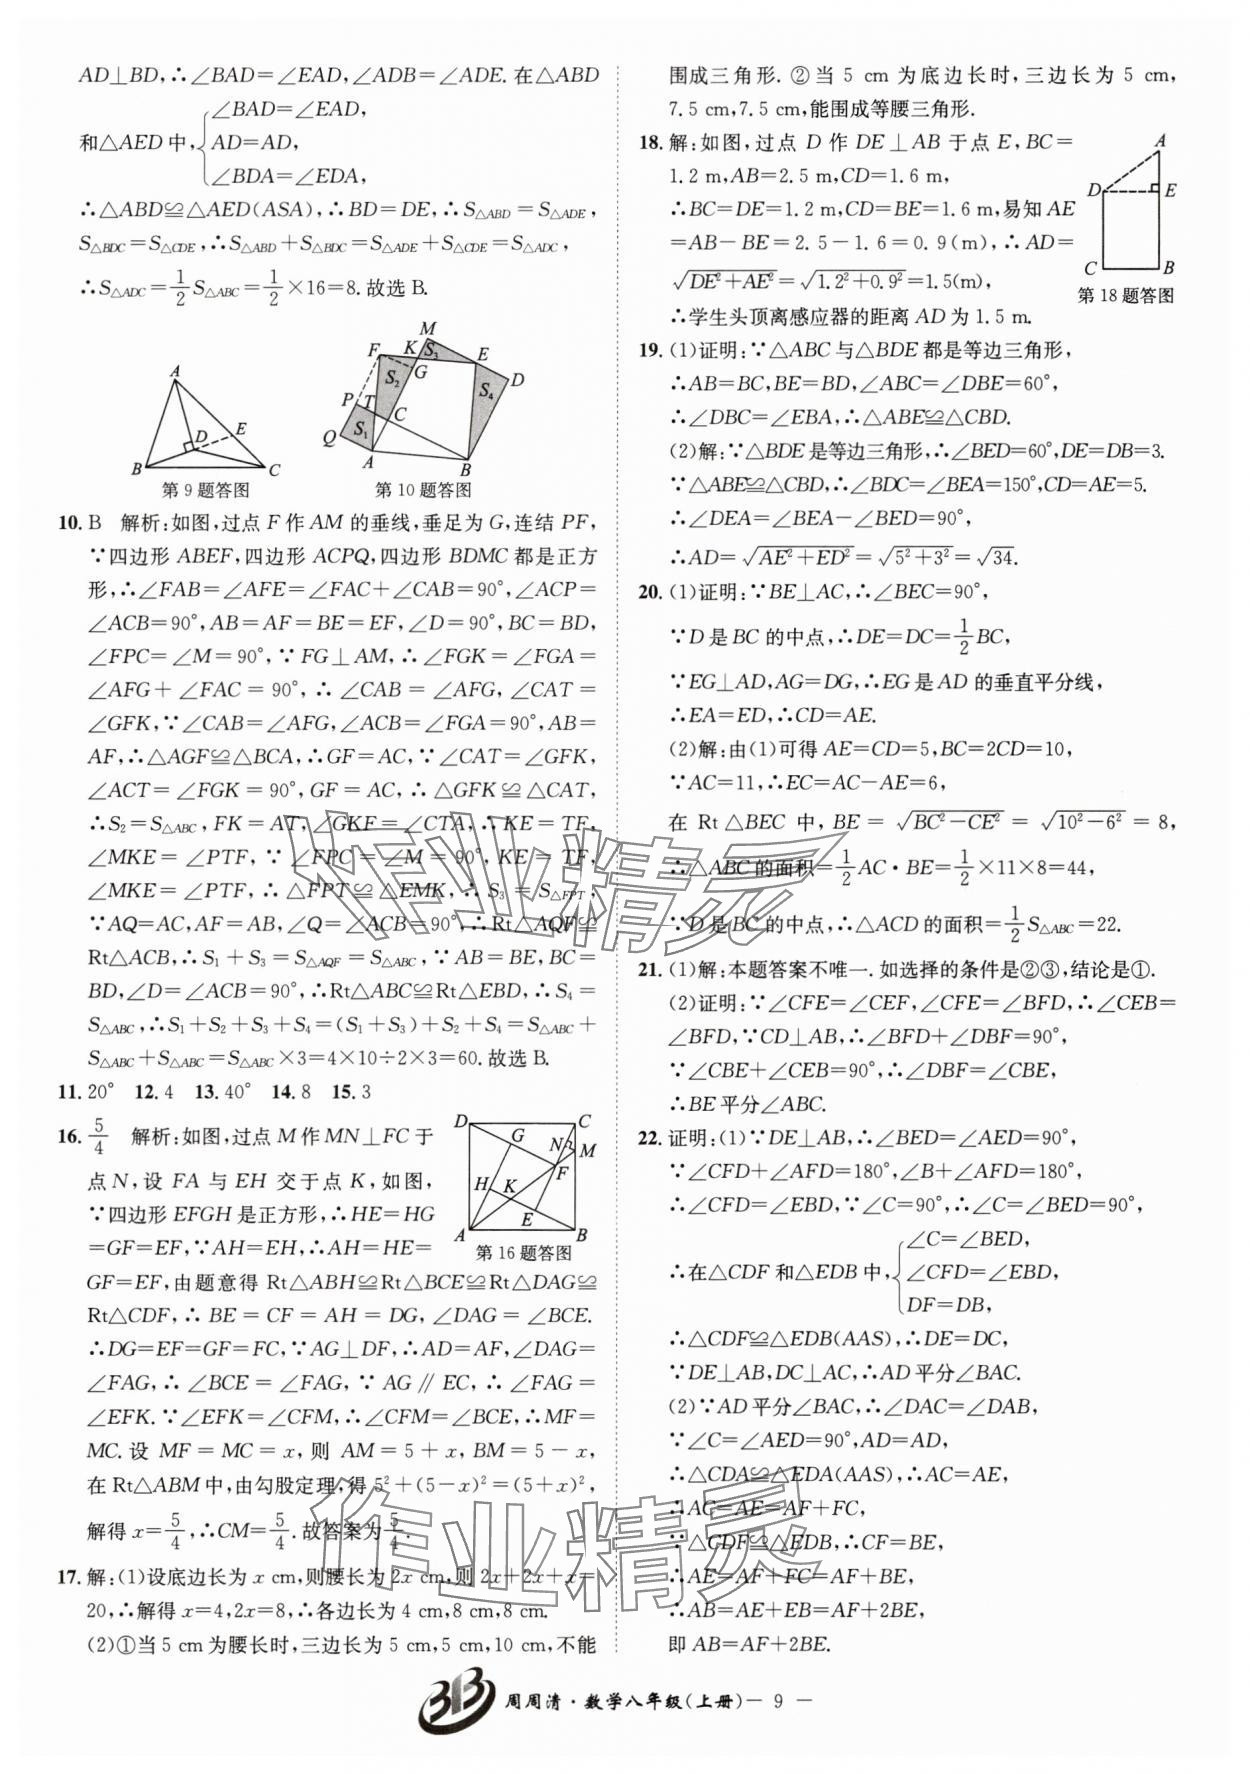 AD⊥BD,∴∠BAD=∠EAD,∠ADB=∠ADE.在△ABD
和△AED中,{∠BAD=∠EAD,
AD=AD,
∠BDA=∠EDA,
∴△ABD≌△AED(ASA),∴BD=DE,∴S△ABD=S△ADE,
S△BDC=S△CDE,∴S△ABD+S△BDC=S△ADE+S△CDE=S△ADC,
∴S△ADC=1/2 S△ABC=1/2×16=8.故选B.
A
D
E
B
C
第9题答图
M
F
K
S₃
E
S₂
G
D
P
T
C
S₄
Q
S₁
A
B
第10题答图
10. B 解析:如图,过点F作AM的垂线,垂足为G,连结PF,
∵四边形ABEF,四边形ACPQ,四边形BDMC都是正方
形,∴∠FAB=∠AFE=∠FAC+∠CAB=90°,∠ACP=
∠ACB=90°,AB=AF=BE=EF,∠D=90°,BC=BD,
∠FPC=∠M=90°,∵FG⊥AM,∴∠FGK=∠FGA=
∠AFG+∠FAC=90°,∴∠CAB=∠AFG,∠CAT=
∠GFK,∵∠CAB=∠AFG,∠ACB=∠FGA=90°,AB=
AF,∴△AGF≌△BCA,∴GF=AC,∵∠CAT=∠GFK,
∠ACT=∠FGK=90°,GF=AC,∴△GFK≌△CAT,
∴S₂=S△ABC,FK=AT,∠GKF=∠CTA,∴KE=TF,
∠MKE=∠PTF,∵∠FPC=∠M=90°,KE=TF,
∠MKE=∠PTF,∴△FPT≌△EMK,∴S₃=S△FPT,
∵AQ=AC,AF=AB,∠Q=∠ACB=90°,∴Rt△AQF≌
Rt△ACB,∴S₁+S₃=S△AQF=S△ABC,∵AB=BE,BC=
BD,∠D=∠ACB=90°,∴Rt△ABC≌Rt△EBD,∴S₄=
S△ABC,∴S₁+S₂+S₃+S₄=(S₁+S₃)+S₂+S₄=S△ABC+
S△ABC+S△ABC=S△ABC×3=4×10÷2×3=60.故选B.
11. 20° 12. 4 13. 40° 14. 8 15. 3
16. 5/4 解析:如图,过点M作MN⊥FC于
点N,设FA与EH交于点K,如图,
∵四边形EFGH是正方形,∴HE=HG
=GF=EF,∵AH=EH,∴AH=HE=
D
C
G
N
M
F
H
K
E
A
B
第16题答图
GF=EF,由题意得Rt△ABH≌Rt△BCE≌Rt△DAG≌
Rt△CDF,∴BE=CF=AH=DG,∠DAG=∠BCE.
∴DG=EF=GF=FC,∵AG⊥DF,∴AD=AF,∠DAG=
∠FAG,∴∠BCE=∠FAG,∵AG∥EC,∴∠FAG=
∠EFK.∵∠EFK=∠CFM,∴∠CFM=∠BCE,∴MF=
MC.设MF=MC=x,则AM=5+x,BM=5-x,
在Rt△ABM中,由勾股定理,得5²+(5-x)²=(5+x)²,
解得x=5/4,∴CM=5/4.故答案为5/4.
17. 解:(1)设底边长为x cm,则腰长为2x cm,则2x+2x+x=
20,∴解得x=4,2x=8,∴各边长为4 cm,8 cm,8 cm.
(2)①当5 cm为腰长时,三边长为5 cm,5 cm,10 cm,不能
围成三角形.②当5 cm为底边长时,三边长为5 cm,
7.5 cm,7.5 cm,能围成等腰三角形.
18. 解:如图,过点D作DE⊥AB于点E,BC=
1.2 m,AB=2.5 m,CD=1.6 m,
∴BC=DE=1.2 m,CD=BE=1.6 m,易知AE
=AB-BE=2.5-1.6=0.9(m),∴AD=
√(DE²+AE²)=√(1.2²+0.9²)=1.5(m),
∴学生头顶离感应器的距离AD为1.5 m.
A
D
E
C
B
第18题答图
19. (1)证明:∵△ABC与△BDE都是等边三角形,
∴AB=BC,BE=BD,∠ABC=∠DBE=60°,
∴∠DBC=∠EBA,∴△ABE≌△CBD.
(2)解:∵△BDE是等边三角形,∴∠BED=60°,DE=DB=3.
∵△ABE≌△CBD,∴∠BDC=∠BEA=150°,CD=AE=5.
∴∠DEA=∠BEA-∠BED=90°,
∴AD=√(AE²+ED²)=√(5²+3²)=√34.
20. (1)证明:∵BE⊥AC,∴∠BEC=90°,
∵D是BC的中点,∴DE=DC=1/2 BC,
∵EG⊥AD,AG=DG,∴EG是AD的垂直平分线,
∴EA=ED,∴CD=AE.
(2)解:由(1)可得AE=CD=5,BC=2CD=10,
∵AC=11,∴EC=AC-AE=6,
在Rt△BEC中,BE=√(BC²-CE²)=√(10²-6²)=8,
∴△ABC的面积=1/2 AC·BE=1/2×11×8=44,
∵D是BC的中点,∴△ACD的面积=1/2 S△ABC=22.
21. (1)解:本题答案不唯一.如选择的条件是②③,结论是①.
(2)证明:∵∠CFE=∠CEF,∠CFE=∠BFD,∴∠CEB=
∠BFD,∵CD⊥AB,∴∠BFD+∠DBF=90°,
∵∠CBE+∠CEB=90°,∴∠DBF=∠CBE,
∴BE平分∠ABC.
22. 证明:(1)∵DE⊥AB,∴∠BED=∠AED=90°,
∵∠CFD+∠AFD=180°,∠B+∠AFD=180°,
∴∠CFD=∠EBD,∵∠C=90°,∴∠C=∠BED=90°,
∴在△CDF和△EDB中,{∠C=∠BED,
∠CFD=∠EBD,
DF=DB,
∴△CDF≌△EDB(AAS),∴DE=DC,
∵DE⊥AB,DC⊥AC,∴AD平分∠BAC.
(2)∵AD平分∠BAC,∴∠DAC=∠DAB,
∵∠C=∠AED=90°,AD=AD,
∴△CDA≌△EDA(AAS),∴AC=AE,
∴AC=AE=AF+FC,
∵△CDF≌△EDB,∴CF=BE,
∴AE=AF+FC=AF+BE,
∴AB=AE+EB=AF+2BE,
即AB=AF+2BE.
作业精灵
作业精灵
周周清·数学八年级(上册)— 9 —